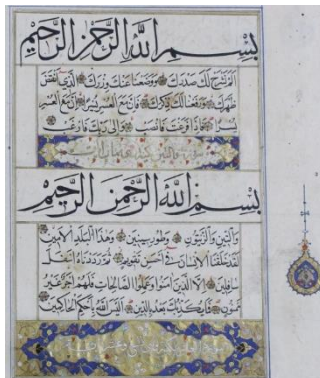 بسم الله الرحمن الرحيم
الم نشرح لك صدرك ووضعنا عنك وزرك الذي انقض
ظهرك ورفعنا لك ذكرك فان مع العسر يسرا ان مع العسر
يسرا فاذا فرغت فانصب والى ربك فارغب
سورة والتين
بسم الله الرحمن الرحيم
والتين والزيتون وطور سينين وهذا البلد الامين
لقد خلقنا الانسان في احسن تقويم ثم رددناه اسفل
سافلين الا الذين امنوا وعملوا الصالحات فلهم اجر غير
ممنون فما يكذبك بعد بالدين اليس الله باحكم الحاكمين